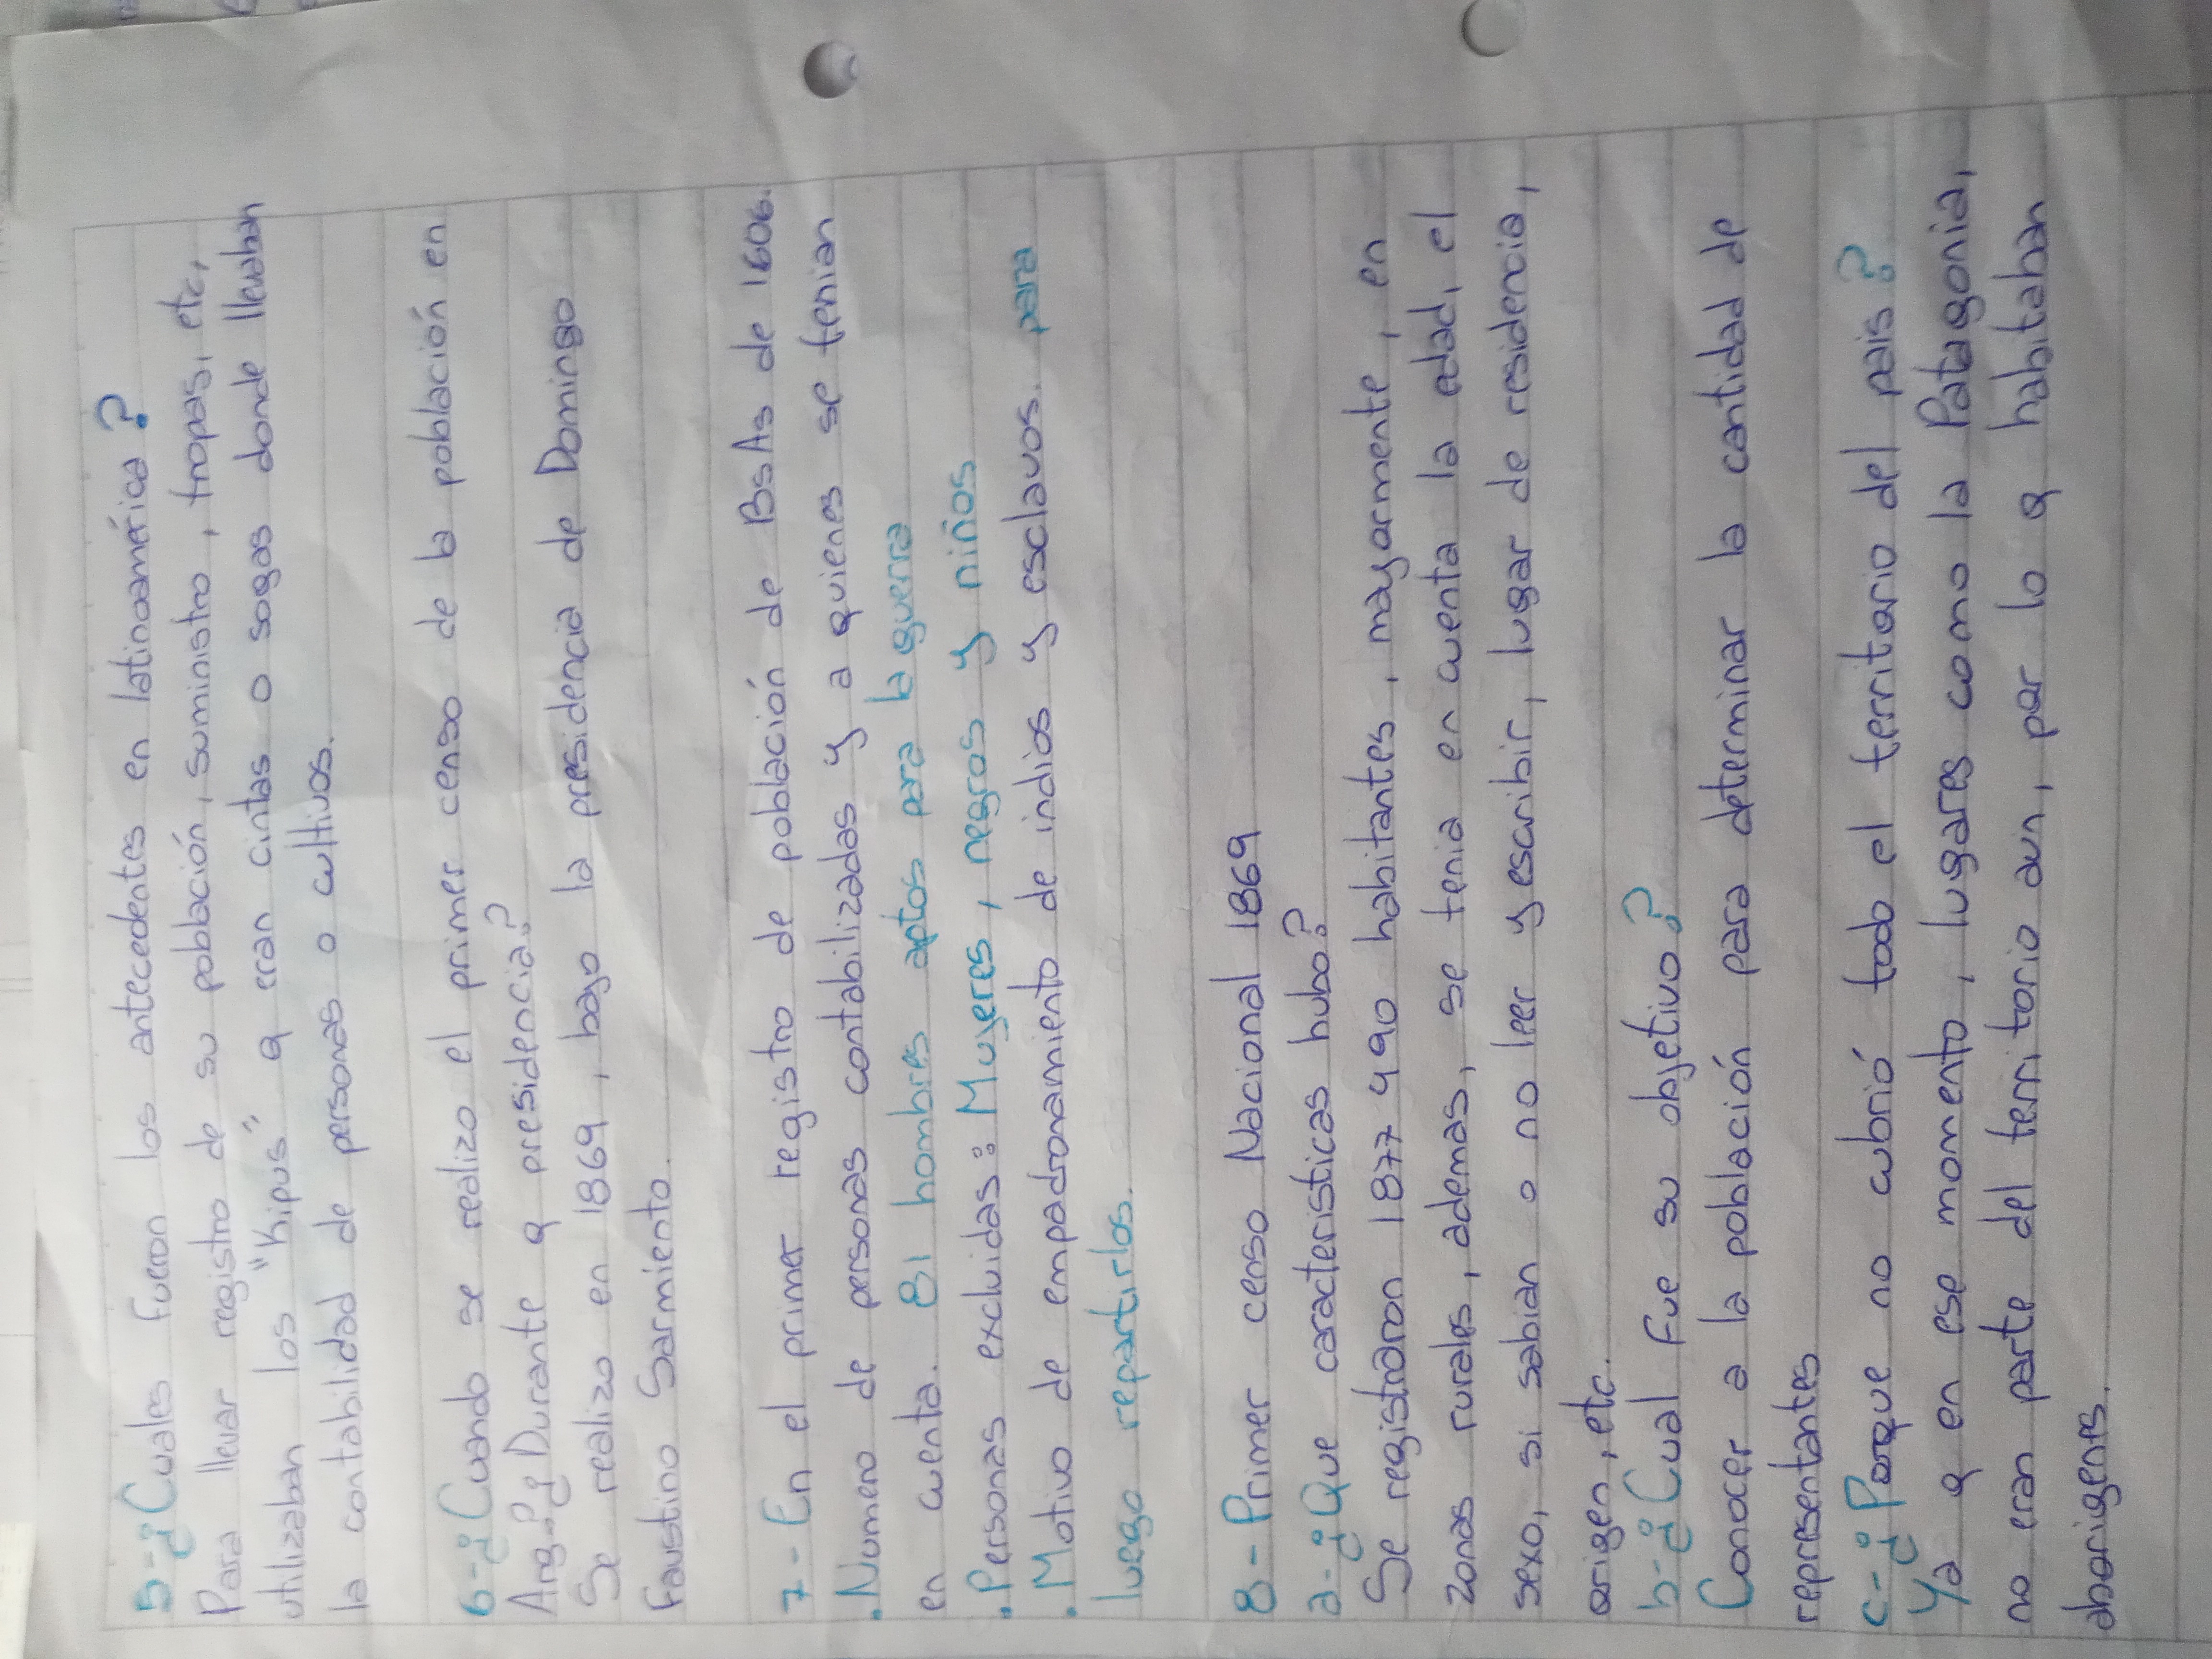 5-¿Cuales fueron los antecedentes en latinoamérica?
Para llevar registro de su población, suministro, tropas, etc,
utilizaban los "Kipus" q eran cintas o sogas donde llevaban
la contabilidad de personas o cultivos.
6-¿Cuando se realizo el primer censo de la población en
Arg.? ¿Durante q presidencia?
Se realizo en 1869, bajo la presidencia de Domingo
Faustino Sarmiento.
7- En el primer registro de población de BsAs de 1606.
. Numero de personas contabilizadas y a quienes se tenian
en cuenta. 81 hombres aptos para la guerra
. Personas excluidas: Muyeres, negros y niños
. Motivo de empadronamiento de indios y esclavos. para
luego repartirlos.
8- Primer censo Nacional 1869
a-¿Que caracteristicas hubo?
Se registraron 1877 490 habitantes, mayormente, en
zonas rurales, ademas, se tenia en cuenta la edad, el
sexo, si sabian o no leer y escribir, lugar de residencia,
origen, etc.
b-¿Cual fue su objetivo?
Conocer a la población para determinar la cantidad de
representantes
c-¿Porque no cubrió todo el territorio del pais?
Ya q en ese momento, lugares como la Patagonia,
no eran parte del territorio aun, por lo q habitaban
aborigenes.